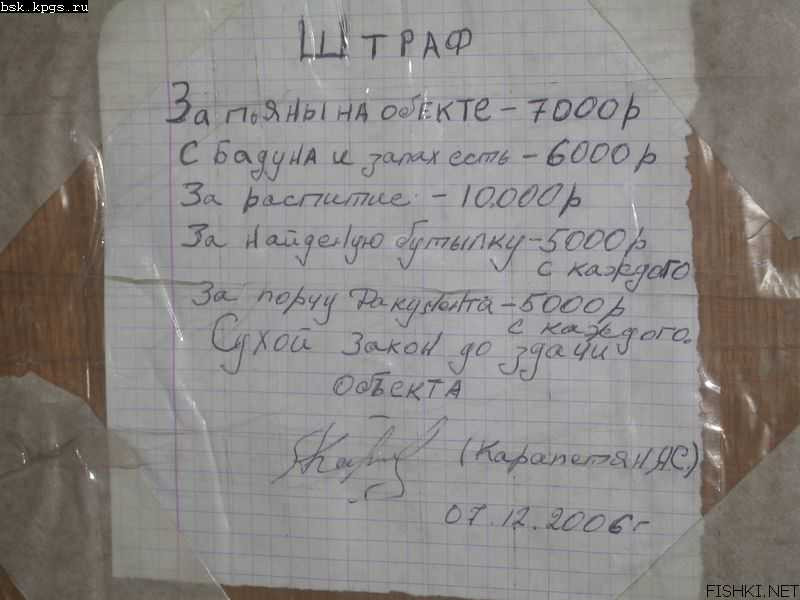 bsk.kpgs.ru
ШТРАФ
За пояны на обекте - 7000р
С бадуна и запах есть - 6000р
За распитие - 10.000р
За найденую бутылку - 5000р
с каждого
За порчу Дакумента - 5000р
с каждого.
Сухой закон до здачи
объекта
(Карапетян АС)
07.12.2006г
FISHKI.NET